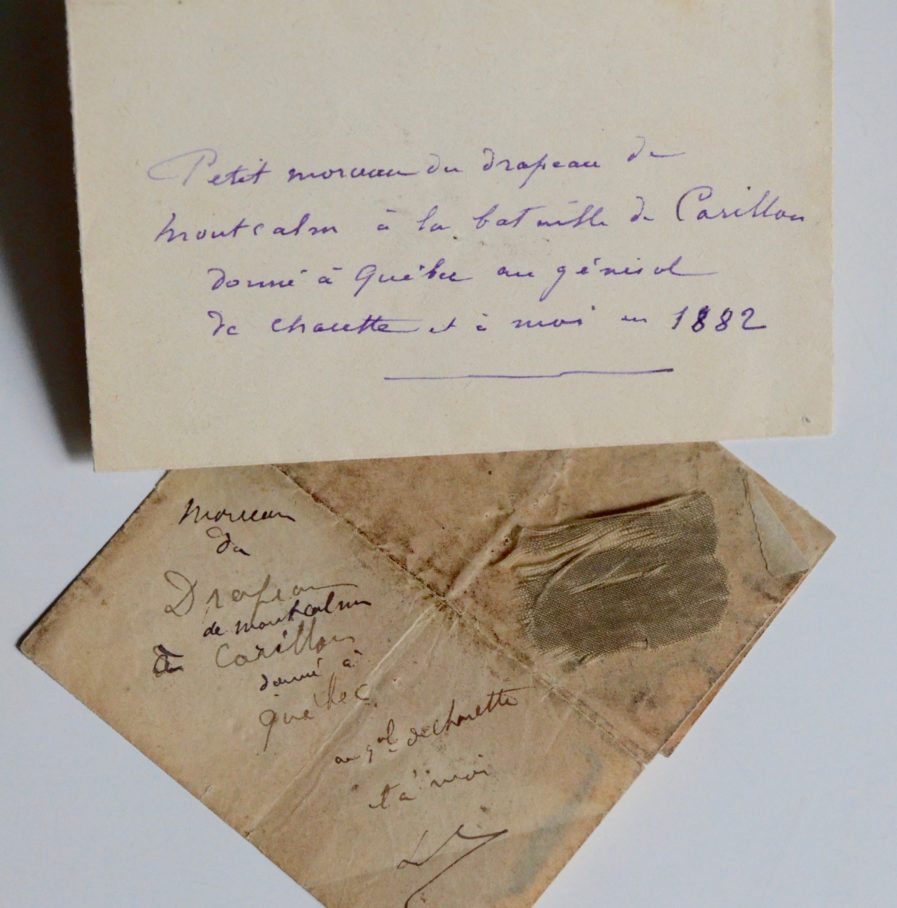 Petit morceau du drapeau de
Montcalm à la bataille de Carillon
donné à Québec au général
de Charette et à moi en 1882
Morceau
du
Drapeau
de Montcalm
de Carillon
donné à
Québec
au gal de Charette
et à moi